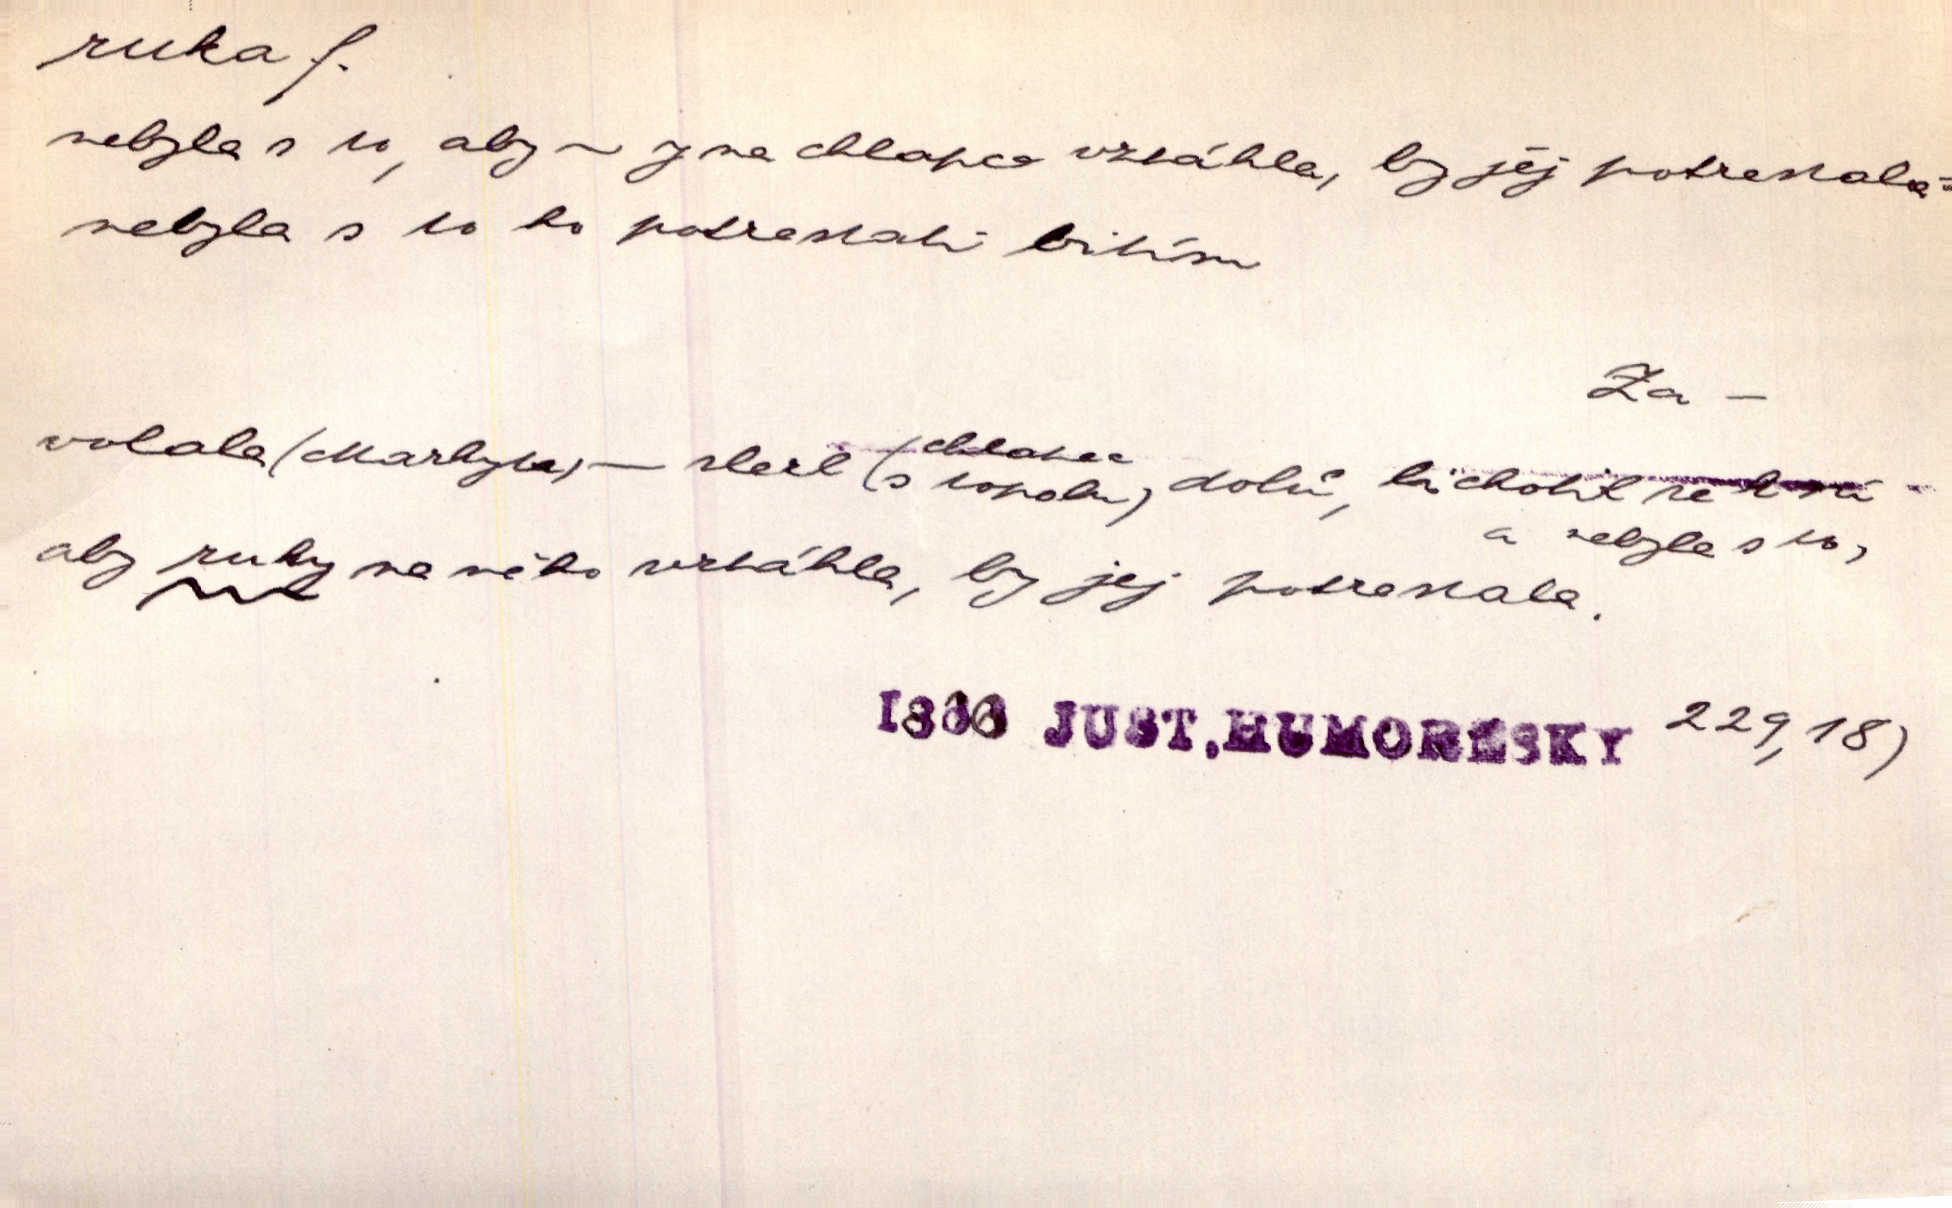 ruka f.
nebyla s to, aby ~ y na chlapce vztáhla, by jej potrestala =
nebyla s to ho potrestati bitím
Za -
volala (Markyta) — slezl (chlapec
s topolu) dolů,
a nebyla s to,
aby ruky na něho vztáhla, by jej potrestala.
1866 JUST. HUMORESKY 229, 18)